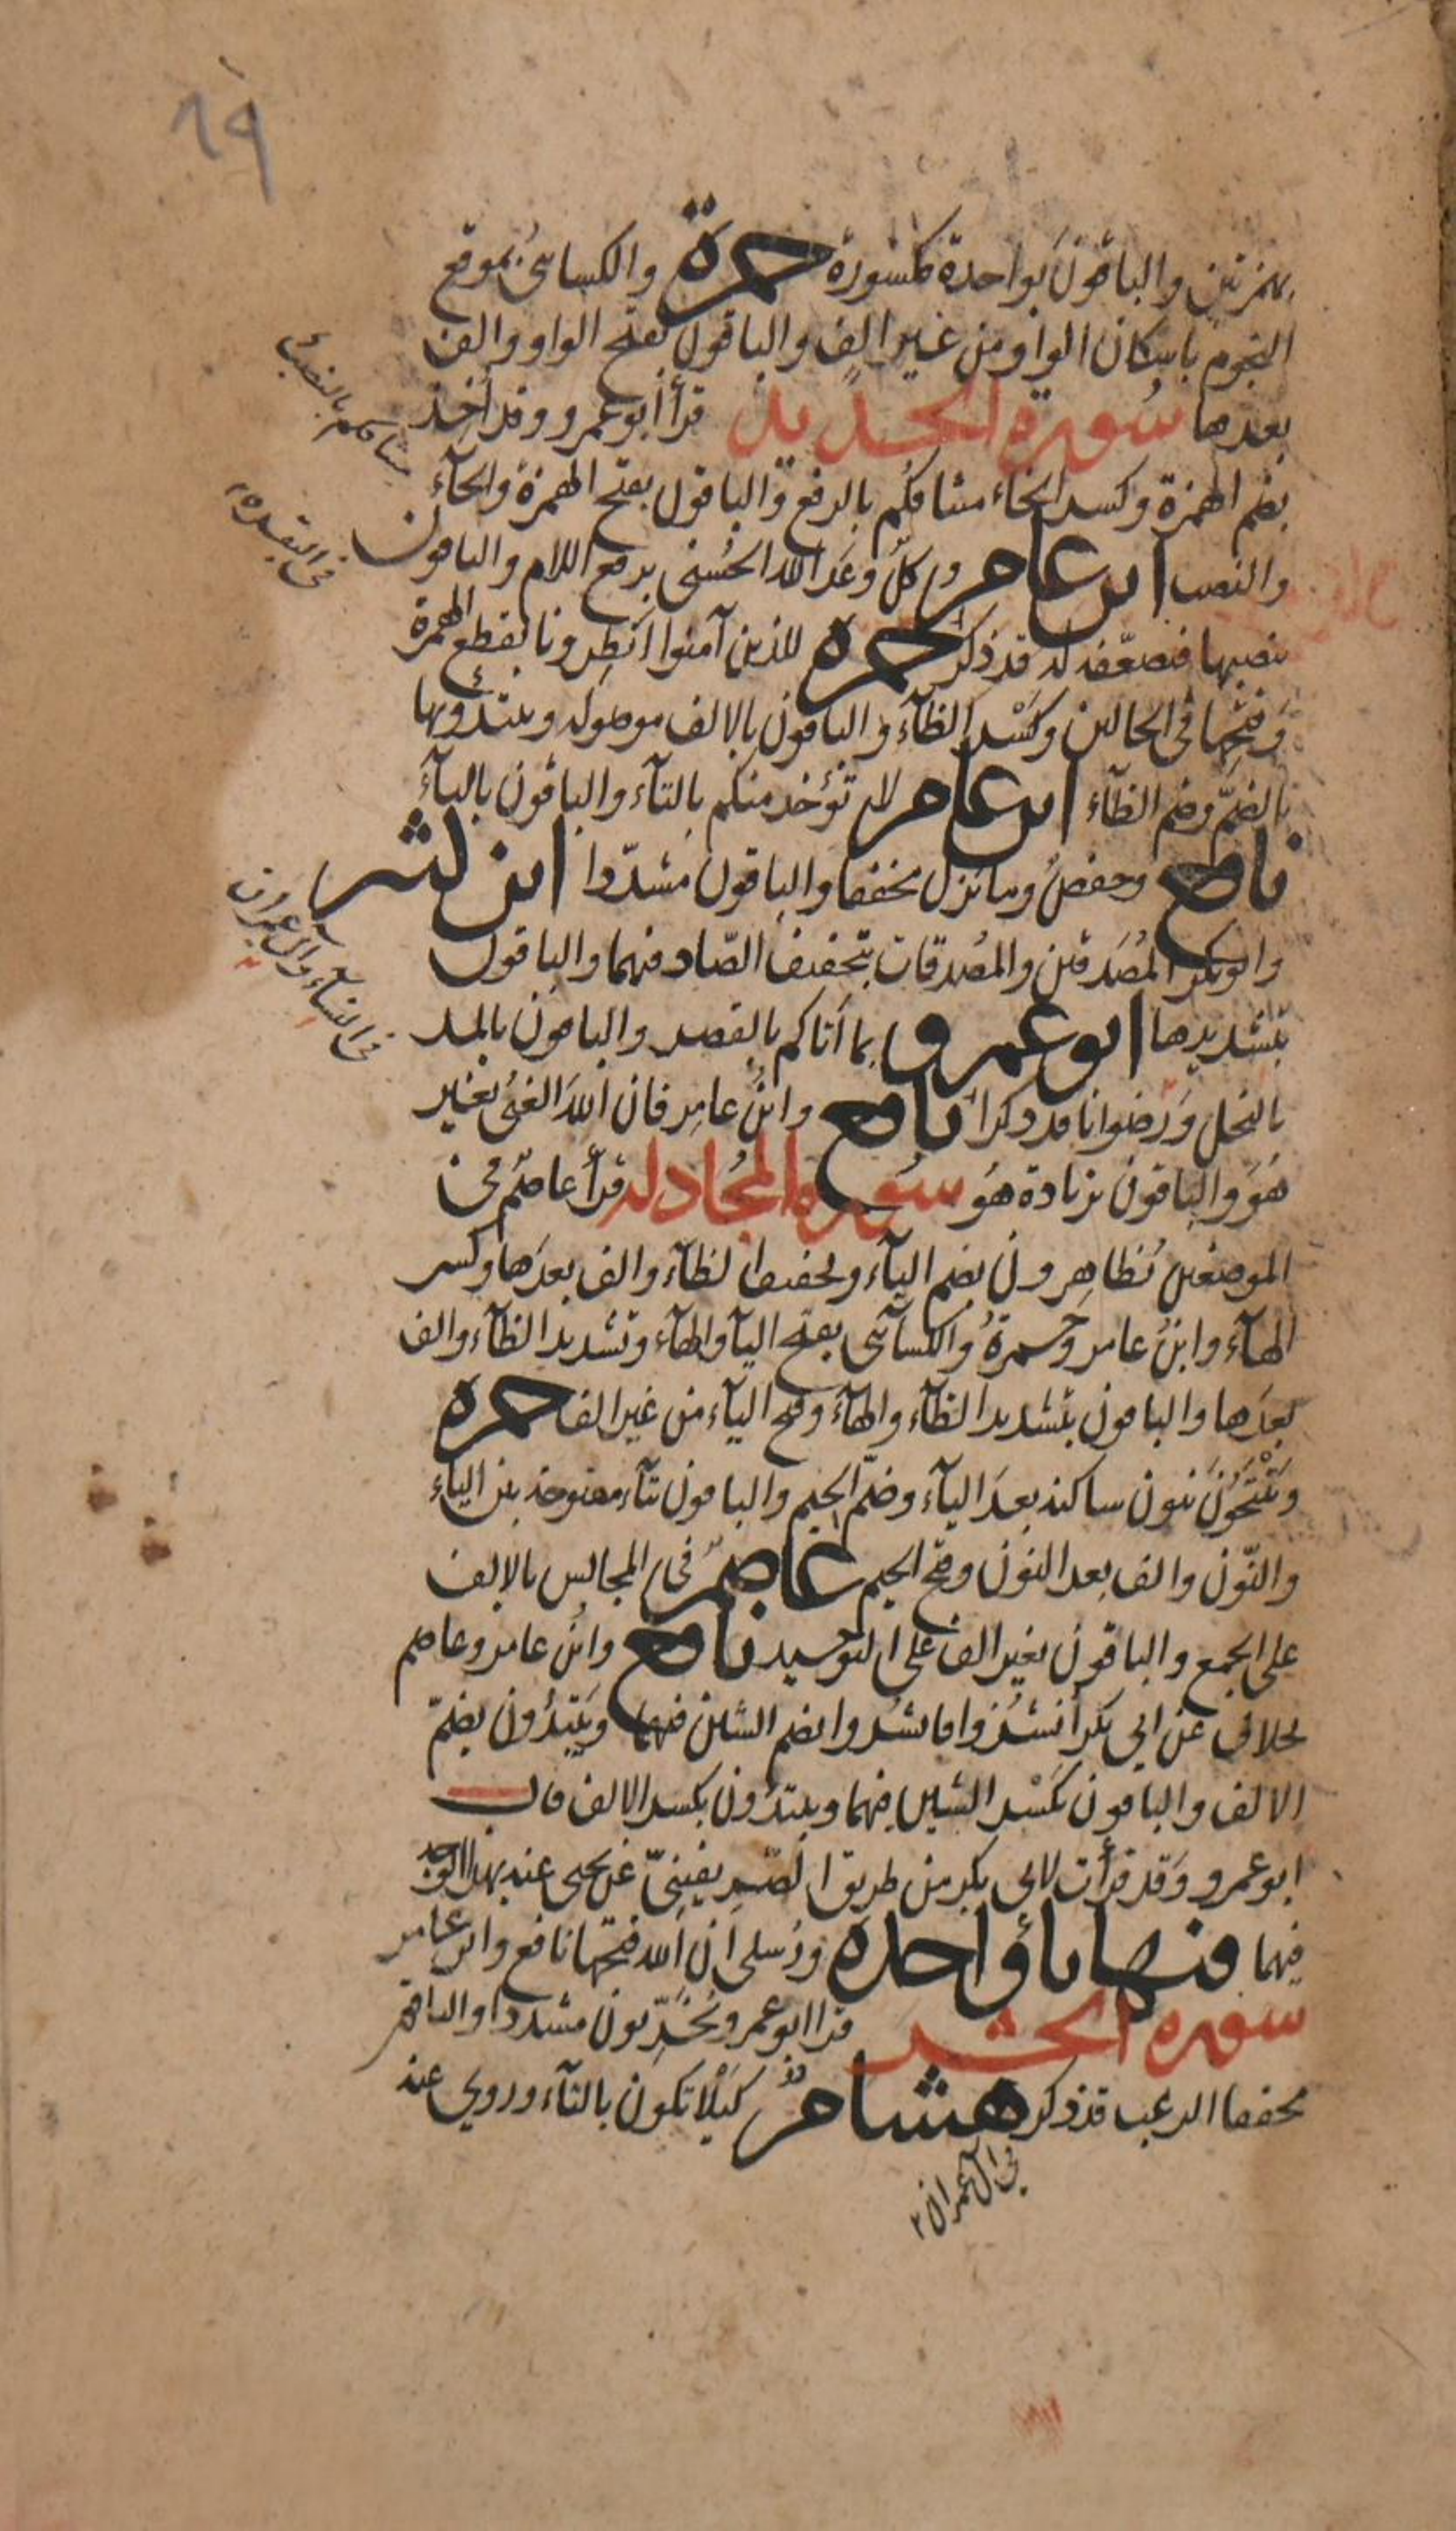 ٦٩
بهمزتين والباقون بواحدة مكسورة حمزة والكسائي بموقع
النجوم باسكان الواو من غير الف والباقون بفتح الواو والف
بعدها سورة الحديد قرأ ابو عمرو وقد اُخِذ
بضم الهمزة وكسر الخاء ميثاقُكم بالرفع والباقون بفتح الهمزة والخآء
ميثاقكم بالنصب
والنصب ابن عامر وكلٌّ وعَد الله الحُسنى برفع اللام والباقون
في البقرة
بنصبها فيضعّفه له قد ذكر حمزة للذين آمنوا اَنظِرونا بقطع الهمزة
وَفتحها في الحالين وكَسْر الظآء والباقون بالالف موصوله ويبتدؤنها
بالضمّ وضم الظآء ابن عامر لا تؤخذ منكم بالتآء والباقون باليآء
نافع وحفصٌ وما نزل مخففا والباقون مشدّدا ابن كثير
وابوبكر المُصَدقين والمُصدقات بتخفيف الصّاد فيهما والباقون
بتشديدها ابو عمرو بما أتاكم بالقصر والباقون بالمد
في النسآء وآل عمران
بالبخل وَرُضوانا قد ذكرا نافع وابنُ عامِر فان اللهَ الغنيُّ بغير
هُوَ والباقون بزيادة هُو سورة المُجادله قرأ عاصمٌ في
الموضعين يُظاهِرون بضم اليآء وتخفيف الظآء والف بعدَها وكسر
الهآء وابنُ عامر وحمزةُ والكسآئي بفتح اليآ والهآء وتشديد الظآء والف
بعدَها والباقون بتشديد الظآء والهآء وفتح اليآء من غير الف حمزه
وَيَنْتَجُونَ بنون ساكنه بعدَ اليآء وضمّ الجيم والباقون بتآء مفتوحه بين الياء
والنّون والف بعد النون وفتح الجيم عاصم في المجالس بالالف
على الجمع والباقون بغير الف على التوحيد نافع وابنُ عامر وعاصم
بخلاف عن ابي بكر اُنشُزوا فانشُزوا بضم الشين فيهما ويَبتدِؤن بضمّ
الالف والباقون بكَسْر الشين فيهما ويبتدؤن بكسر الالف قال
ابو عمرو وَقد قرأت لابي بكر من طريق الصّرِيفينيّ عن يحيى عنه بهذا الوجه
فيهما فيها يآؤ احده ورُسلي ان الله فتحها نافع وابن عامر
سوره الحشر قرا ابو عمرو يُخَرِّبون مشددا والباقون
مخففا الرعب قد ذكر هشامٌ كَيْلا تكون بالتآء وروي عنه
في آل عمران